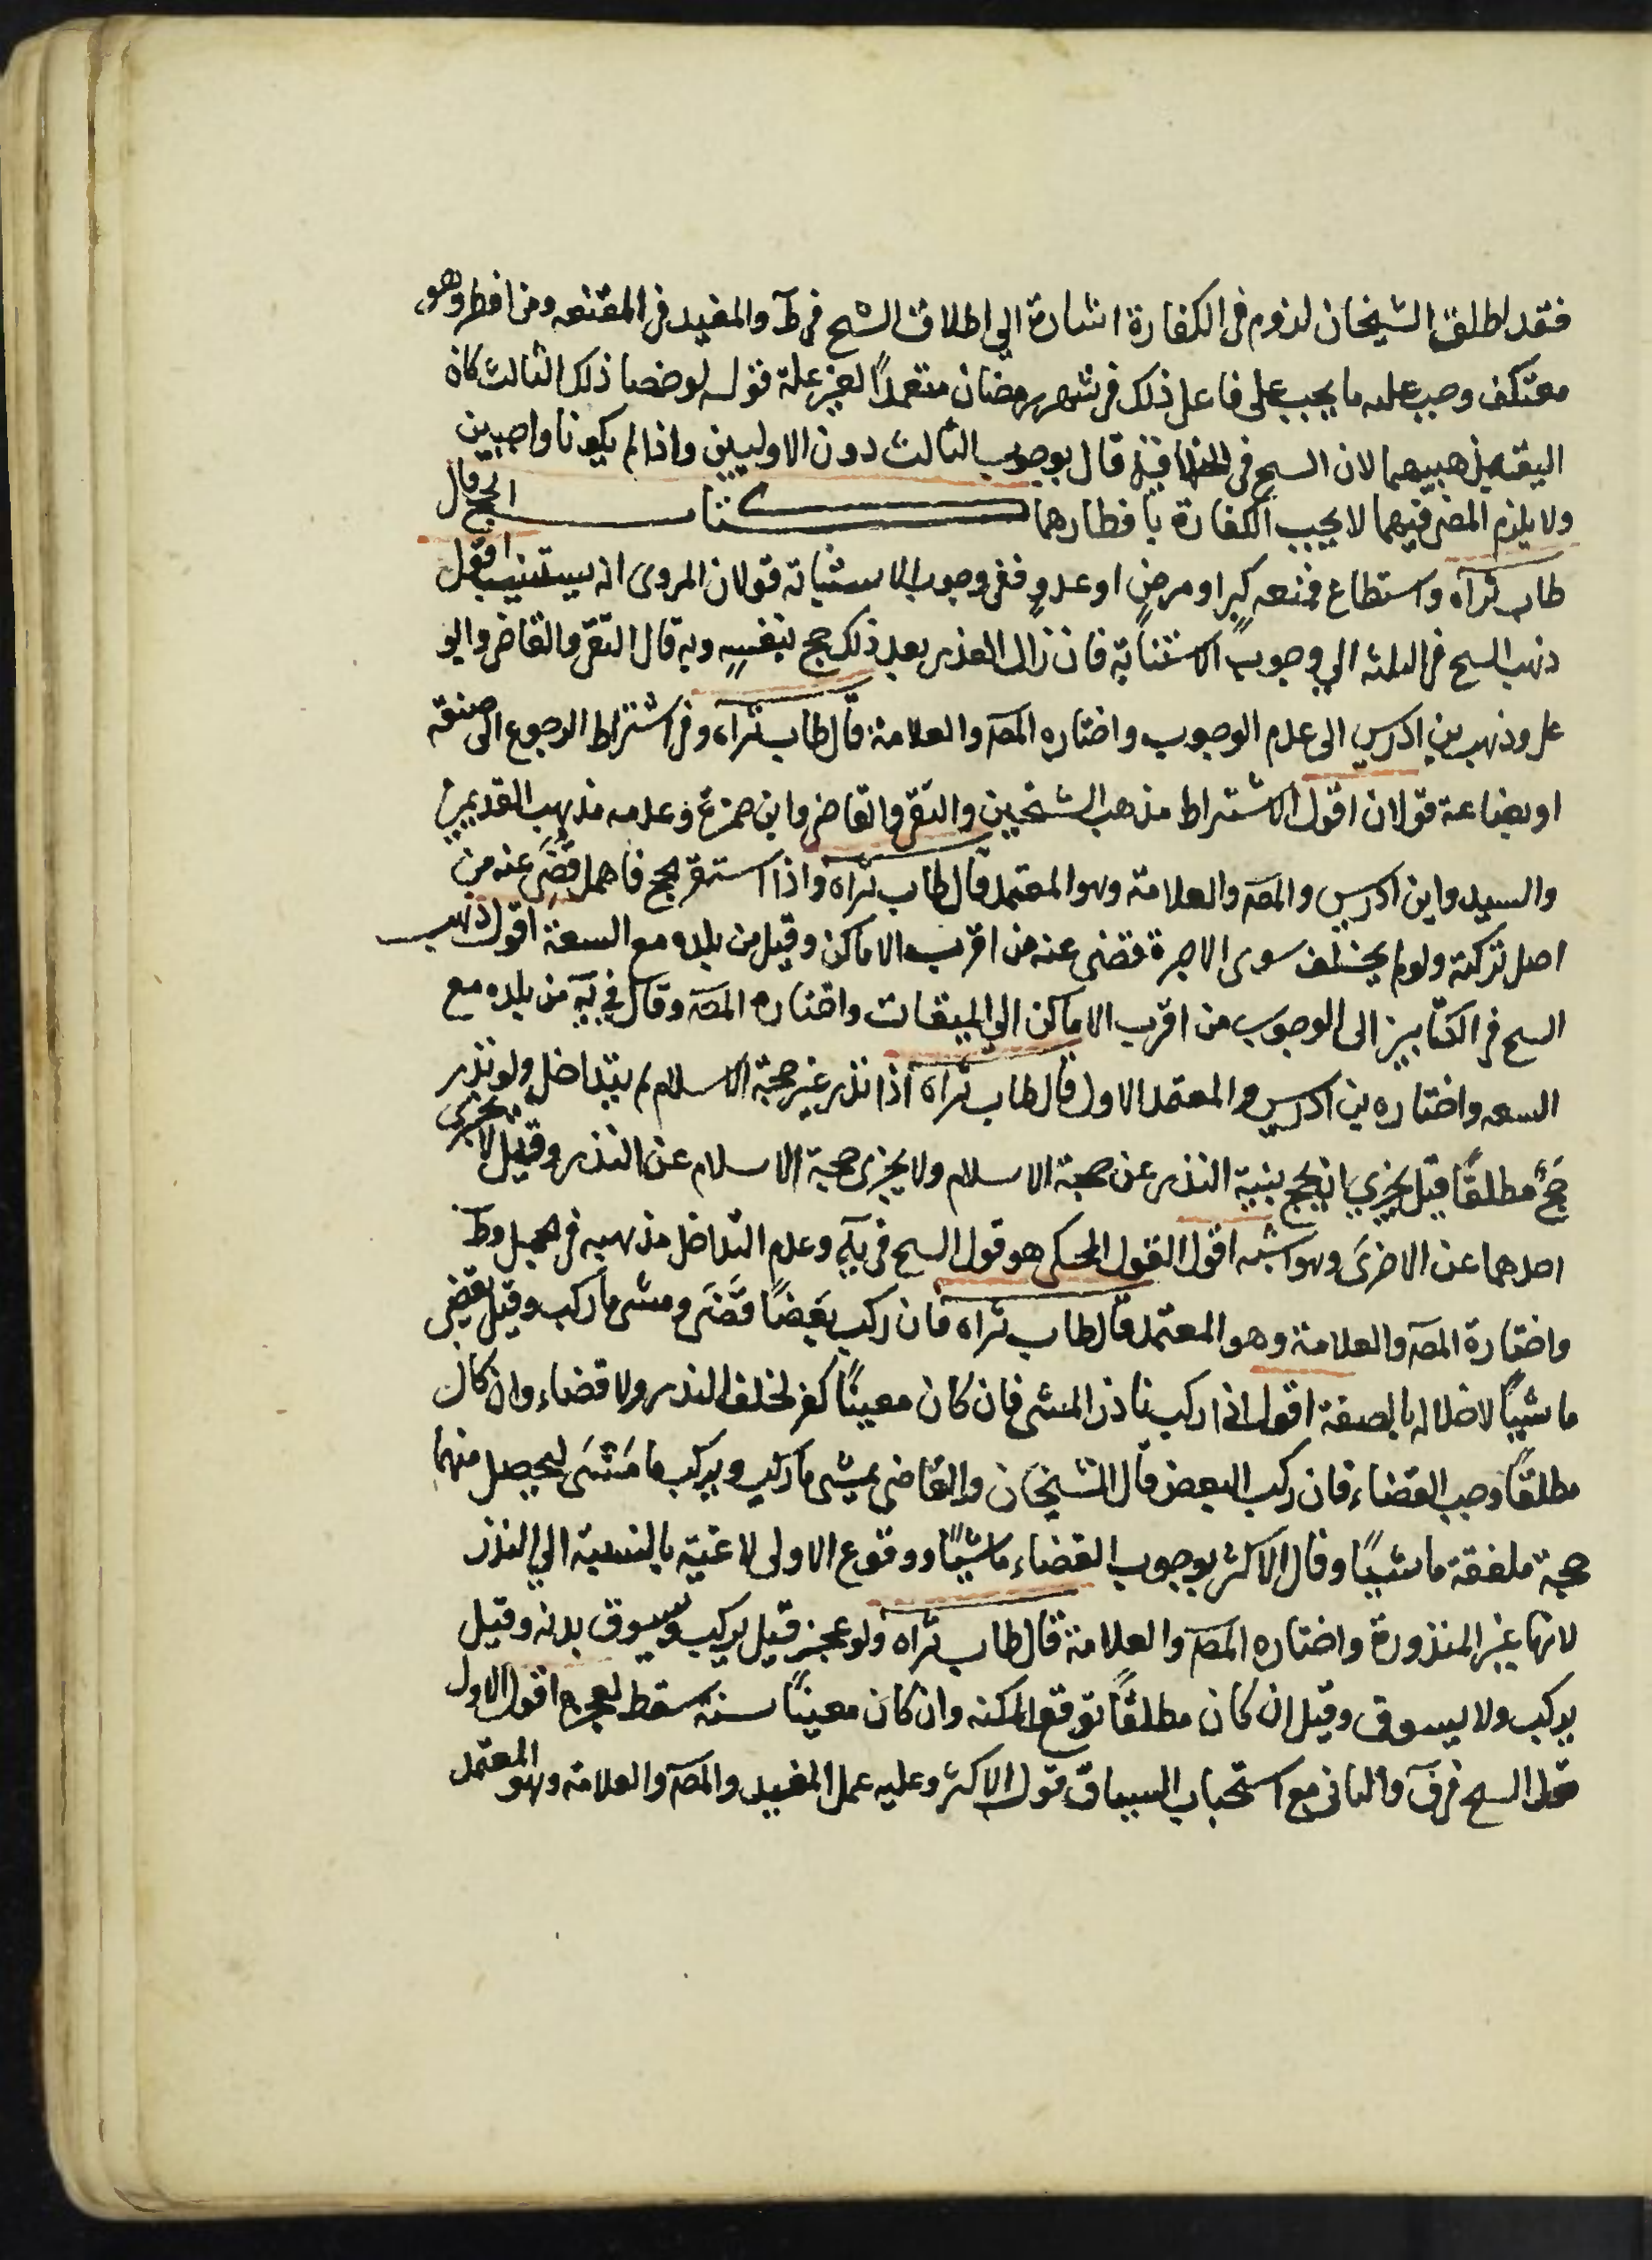 فقد اطلق الشيخان لزوم فى الكفارة اشارة الى اطلاق الشيخ فى ط والمفيد فى المقنعه ومن افطر وهو
معتكف وجب عليه ما يجب على فاعل ذلك فى شهر رمضان متعمدًا لغير علة قوله لو خصصا ذلك الثالث كان
اليق بمذهبيهما لان الشيخ فى قال بوجوب الثالث دون الاوليين واذا لم يكونا واجبين
ولا يلزم المضى فيهما لا يجب الكفارة بافطارهما كتاب الحج قال
طاب ثراه واستطاع فمنعه كبر او مرض او عدو ففى وجوب الاستنابة قولان المروى انه يستنيب اقول
ذهب الشيخ فى الثلثه الى وجوب الاستنابة فان زال العذر بعد ذلك حج بنفسه وبه قال التقى والقاضى وابو
على وذهب بن ادريس الى عدم الوجوب واختاره المصـ والعلامة قال طاب ثراه وفى اشتراط الرجوع الى صنعة
او بضاعة قولان اقول الاشتراط مذهب الشيخين والتقى والقاضى وابن حمزة وعدمه مذهب القديمين
والسيد وابن ادريس والمصـ والعلامة وهو المعتمد قال طاب ثراه واذا استقر الحج فاهمل قضى عنه من
اصل تركته ولو لم يخلف سوى الاجرة قضى عنه من اقرب الاماكن وقيل من بلده مع السعة اقول ذهب
الشيخ فى الكتابين الى الوجوب من اقرب الاماكن الى الميقات واختاره المصـ وقال فى يه من بلده مع
السعه واختاره بن ادريس والمعتمد الاول قال طاب ثراه اذا نذر غير حجة الاسلام لم يتداخل ولو نذر
حج مطلقًا قيل يجزى ان حج بنية النذر عن حجة الاسلام ولا يجزى حجة الاسلام عن النذر وقيل لا يجزى
احدهما عن الاخرى وهو اشبه اقول القول المحكى هو قول الشيخ فى يه وعدم التداخل مذهبه فى الجمل وط
واختاره المصـ والعلامة وهو المعتمد قال طاب ثراه فان ركب بعضًا قضى ومشى ما ركب وقيل يقضى
ماشيًا لاخلاله بالصفة اقول اذا ركب ناذر المشى فان كان معينًا كفر لخلف النذر ولا قضاء وان كان
مطلقًا وجب القضاء فان ركب البعض قال الشيخان والقاضى يمشى ما ركب ويركب ما مشى ليحصل منهما
حجة ملفقة ماشيًا وقال الاكثر بوجوب القضاء ماشيًا ووقوع الاولى لاغية بالنسبة الى النذر
لانها غير المنذورة واختاره المصـ والعلامة قال طاب ثراه ولو عجز قيل يركب ويسوق بدنه وقيل
يركب ولا يسوق وقيل ان كان مطلقًا توقع المكنه وان كان معينًا سنة سقط لعجزه اقول الاول
قول الشيخ فى ف والثانى مع استحباب السياق قول الاكثر وعليه عمل المفيد والمصـ والعلامة وهو المعتمد